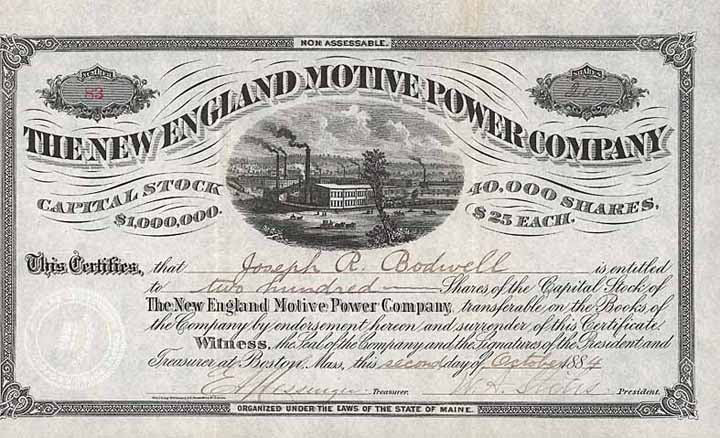 NON ASSESSABLE.
NUMBER
83
SHARES
200
THE NEW ENGLAND MOTIVE POWER COMPANY
CAPITAL STOCK
$1,000,000.
40,000 SHARES.
$25 EACH.
This Certifies, that Joseph R. Bodwell is entitled
to two hundred Shares of the Capital Stock of
The New England Motive Power Company, transferable on the Books of
the Company by endorsement hereon and surrender of this Certificate.
Witness, the Seal of the Company and the Signatures of the President and
Treasurer at Boston, Mass, this second day of October 1884
Treasurer. President.
ORGANIZED UNDER THE LAWS OF THE STATE OF MAINE.